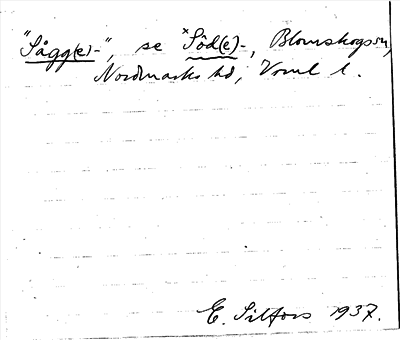 "Sågg(e)-", se ˣSöd(e)-, Blomskogs sn,
Nordmarks hd, Vrml l.
E. Silfors 1937.